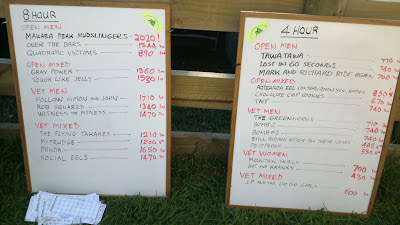 8 HOUR
OPEN MEN
MAKARA PEAK MUDSLINGERS - 2020!
OVER THE BARS - 1244
QUADRATIC VICTIMS - 890
OPEN MIXED
GRAY POWER - 1360
SQUISH LIKE JELLY - 1530
VET MEN
FOLLOW SIMON AND JOHN - 1710
ROB SQUARED - 1340
WITNESS THE FITNESS - 1470
VET MIXED
THE FLYING TAKAHES - 1210
MISTRUDGE - 1200
PANDA - 1650
SOCIAL EELS - 1470
4 HOUR
OPEN MEN
TAWATAWA 770
LOST IN 60 SECONDS 740
MARK AND RICHARD RIDE AGAIN 700
OPEN MIXED
AOTEAROA EEL 850
CHOCOLATE CHIP COOKIES 670
TNT 740
VET MEN
THE GREENHORNS 710
BOMB 2 740
BOMB #1 740
STILL RIDING AFTER ALL THESE YEARS 530
TESTPROOF
VET WOMEN
MOUNTAIN SNAILS 700
HOT OR KRANKY 430
VET MIXED
IP AND THE GO GO GIRLS
600